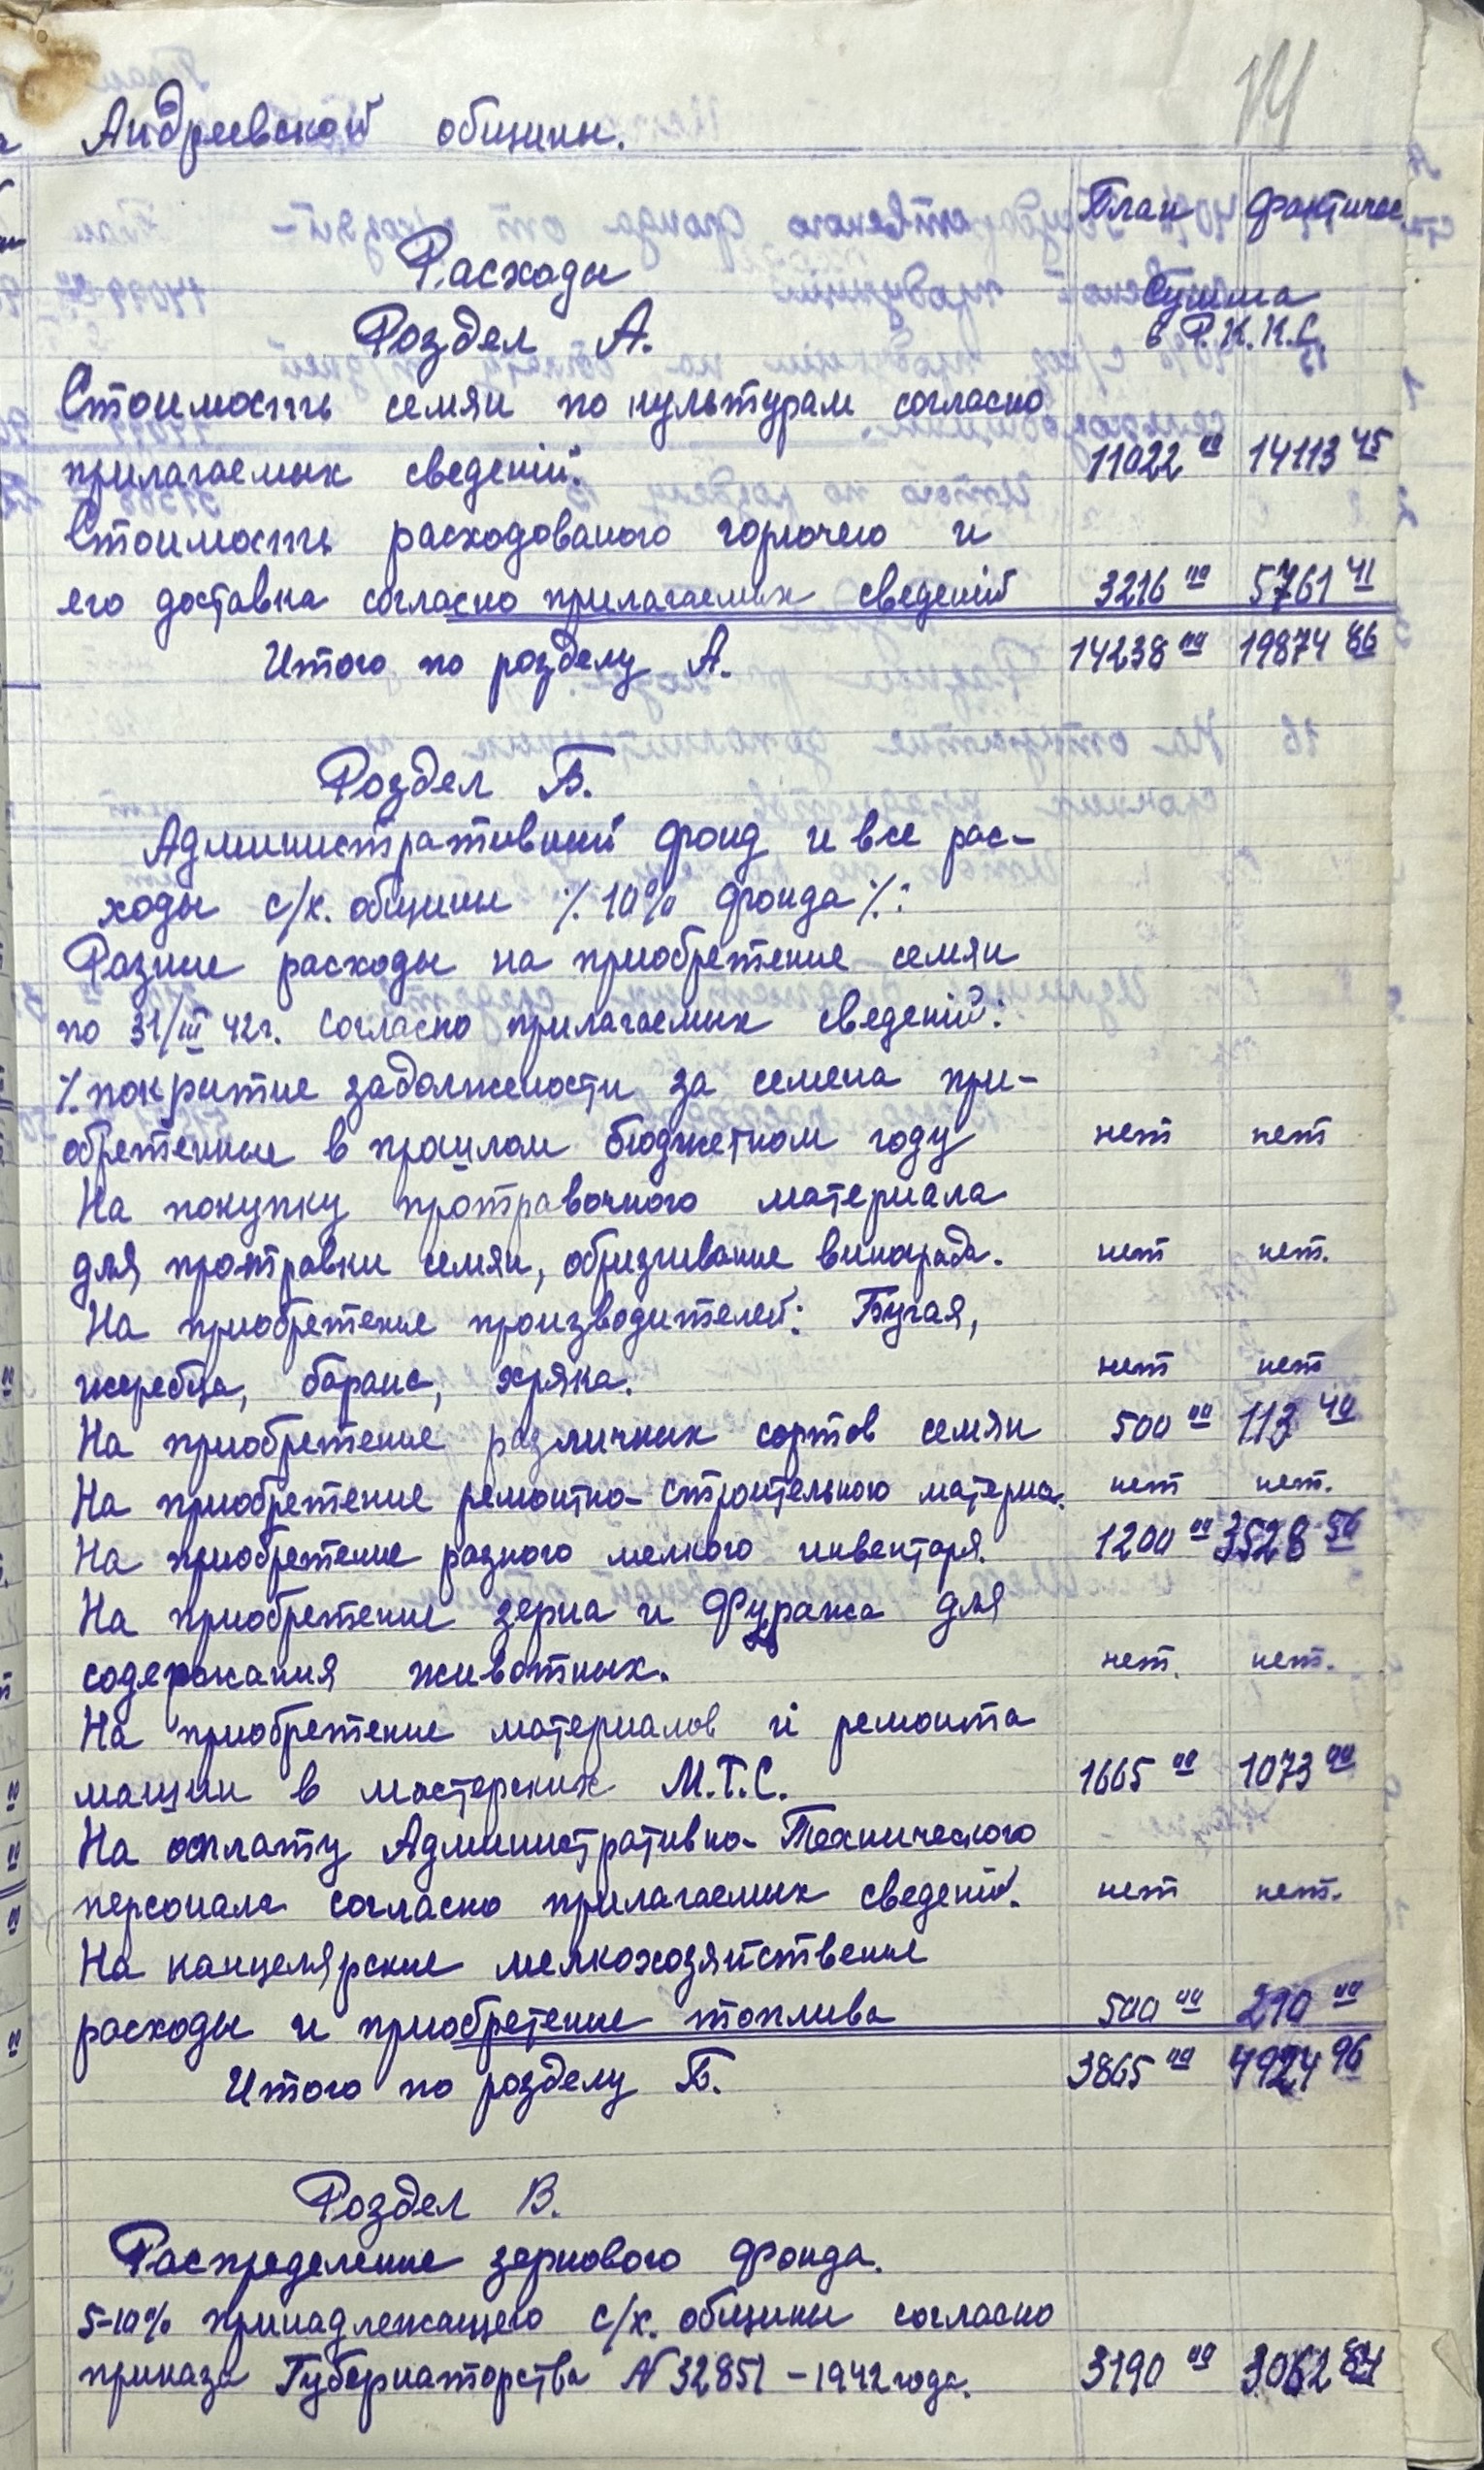 Андреевской общины.
План Фактичес
Расходы
Сумма
Роздел А.
в Р.К.К.С.
Стоимость семян по культурам согласно
прилагаемых сведеній: 11022 00 14113 45
Стоимость расходованого горючего и
его доставка согласно прилагаемых сведеній 3216 00 5761 41
Итого по розделу А. 14238 00 19874 86
Роздел Б.
Административний фонд и все рас-
ходы с/х. общины /. 10% фонда /:
Разние расходы на приобретение семян
по 31/III 42г. согласно прилагаемых сведеній:
/. покритие задолжености за семена при-
обретенные в прошлом бюджетном году нет нет
На покупку протравочного материала
для протравки семян, обризгивание винограда. нет нет.
На приобретение производителей: Бугая,
жеребца, барана, хряка. нет нет
На приобретение различных сортов семян 500 00 113 40
На приобретение ремонтно-строительного материа. нет нет.
На приобретение разного мелкого инвентаря. 1200 00 3528 56
На приобретение зерна и Фуража для
содержания животных. нет. нет.
На приобретение материалов и ремонта
машин в мастерских М.Т.С. 1665 00 1073 00
На оплату Административно-Технического
персонала согласно прилагаемых сведеній. нет нет.
На канцелярские мелкохозяйственые
расходы и приобретение топлива 500 00 210 00
Итого по розделу Б. 3865 00 4924 96
Роздел В.
Распределение зернового Фонда.
5-10% принадлежащего с/х. общины согласно
приказа Губернаторства № 32851 – 1942 года. 3190 00 3062 84